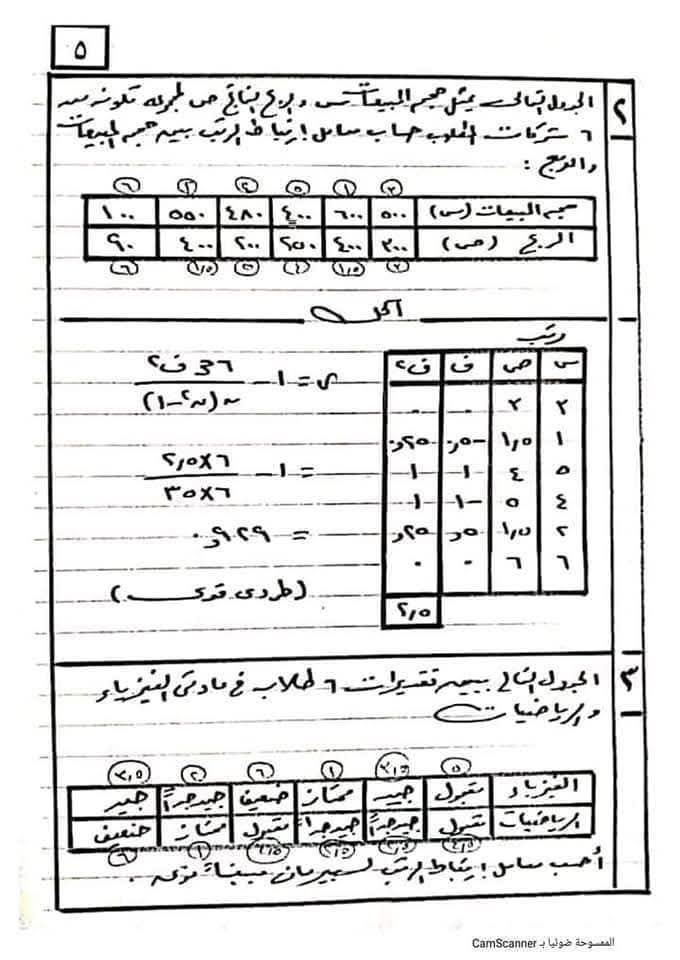 ٥
٢
الجدول التالى يمثل حجم المبيعات س والربح الناتج ص لمجموعه تكونه من
٦ شركات المطلوب حساب معامل إرتباط الرتب بين حجم المبيعات
والربح :
٣ ١ ٥ ٤ ٢ ٦
حجم المبيعات (س) ٥٠٠ ٦٠٠ ٤٠٠ ٤٨٠ ٥٥٠ ١٠٠
الربح (ص) ٣٠٠ ٤٠٠ ٢٥٠ ٢٠٠ ٤٠٠ ٩٠
٣ ١,٥ ٤ ٥ ١,٥ ٦
الحل
رتب
س ص ف ف٢
٣ ٣ ٠ ٠
١ ١,٥ -٥,٠ ٢٥,٠
٥ ٤ ١ ١
٤ ٥ -١ ١
٢ ١,٥ ٥,٠ ٢٥,٠
٦ ٦ ٠ ٠
٢,٥
ر = ١ - ٦ مجـ ف٢ / ن (ن٢ - ١)
= ١ - ٦×٢,٥ / ٦×٣٥
= ٩٢٩,٠
(طردى قوى)
٣
الجدول التالى يبين تقديرات ٦ طلاب فى مادتى الفيزياء
والرياضيات
٥ ٣,٥ ١ ٦ ٢ ٣,٥
الفيزياء مقبول جيد ممتاز ضعيف جيد جداً جيد
الرياضيات مقبول جيد جداً جيد جداً مقبول ممتاز ضعيف
٤,٥ ٢,٥ ٢,٥ ٤,٥ ١ ٦
أحسب معامل إرتباط الرتب لسبيرمان مبيناً نوعه .
الممسوحة ضوئيا بـ CamScanner